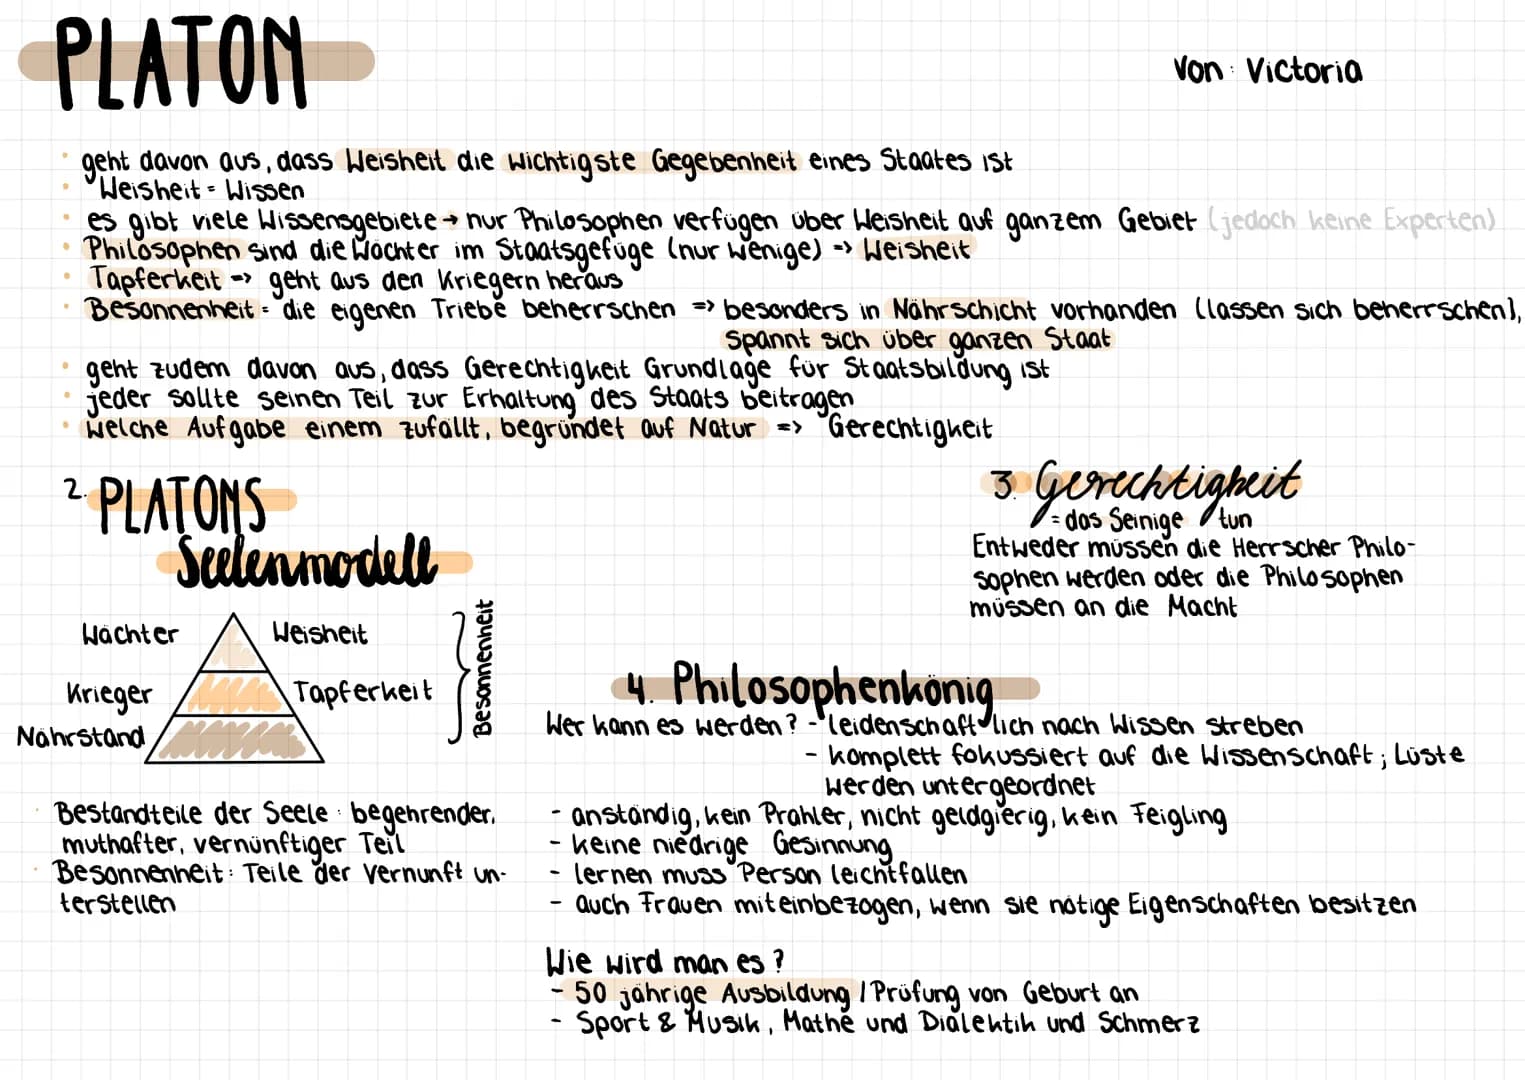 PLATON
Von: Victoria
• geht davon aus, dass Weisheit die wichtigste Gegebenheit eines Staates ist
• Weisheit = Wissen
• es gibt viele Wissensgebiete → nur Philosophen verfügen über Weisheit auf ganzem Gebiet (jedoch keine Experten)
• Philosophen sind die Wächter im Staatsgefüge (nur wenige) => Weisheit
• Tapferkeit => geht aus den Kriegern heraus
• Besonnenheit = die eigenen Triebe beherrschen => besonders in Nährschicht vorhanden (lassen sich beherrschen),
spannt sich über ganzen Staat
• geht zudem davon aus, dass Gerechtigkeit Grundlage für Staatsbildung ist
• jeder sollte seinen Teil zur Erhaltung des Staats beitragen
• welche Aufgabe einem zufällt, begründet auf Natur => Gerechtigkeit
2. PLATONS
Seelenmodell
Wächter Weisheit
Krieger Tapferkeit
Nährstand
Besonnenheit
• Bestandteile der Seele: begehrender,
muthafter, vernünftiger Teil
• Besonnenheit: Teile der Vernunft un-
terstellen
3. Gerechtigkeit
= das Seinige tun
Entweder müssen die Herrscher Philo-
sophen werden oder die Philosophen
müssen an die Macht
4. Philosophenkönig
Wer kann es werden? - leidenschaftlich nach Wissen streben
- komplett fokussiert auf die Wissenschaft; Lüste
werden untergeordnet
- anständig, kein Prahler, nicht geldgierig, kein Feigling
- keine niedrige Gesinnung
- lernen muss Person leichtfallen
- auch Frauen miteinbezogen, wenn sie nötige Eigenschaften besitzen
Wie wird man es?
- 50 jährige Ausbildung / Prüfung von Geburt an
- Sport & Musik, Mathe und Dialektik und Schmerz